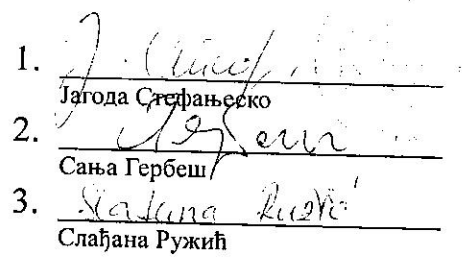 1.
Јагода Стефањеско
2.
Сања Гербеш
3. Slađana Ružić
Слађана Ружић